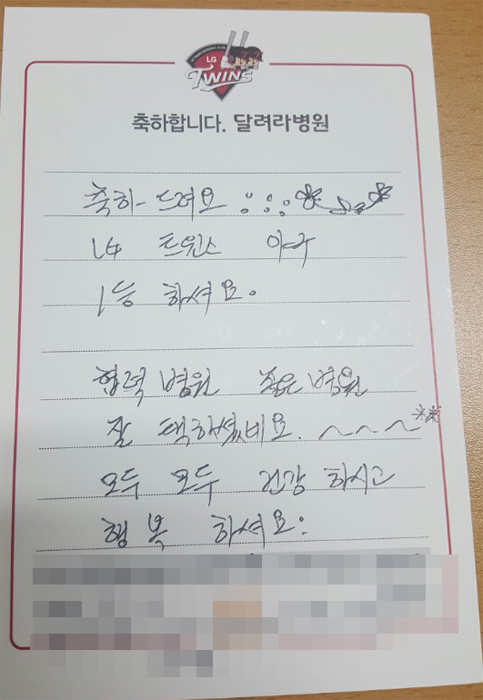 LG
TWINS
축하합니다. 달려라병원
축하 드려요
LG 트윈스 야구
1등 하셔요.
협력 병원 좋은 병원
잘 택하셨네요. ~~~
모두 모두 건강 하시고
행복 하셔요.